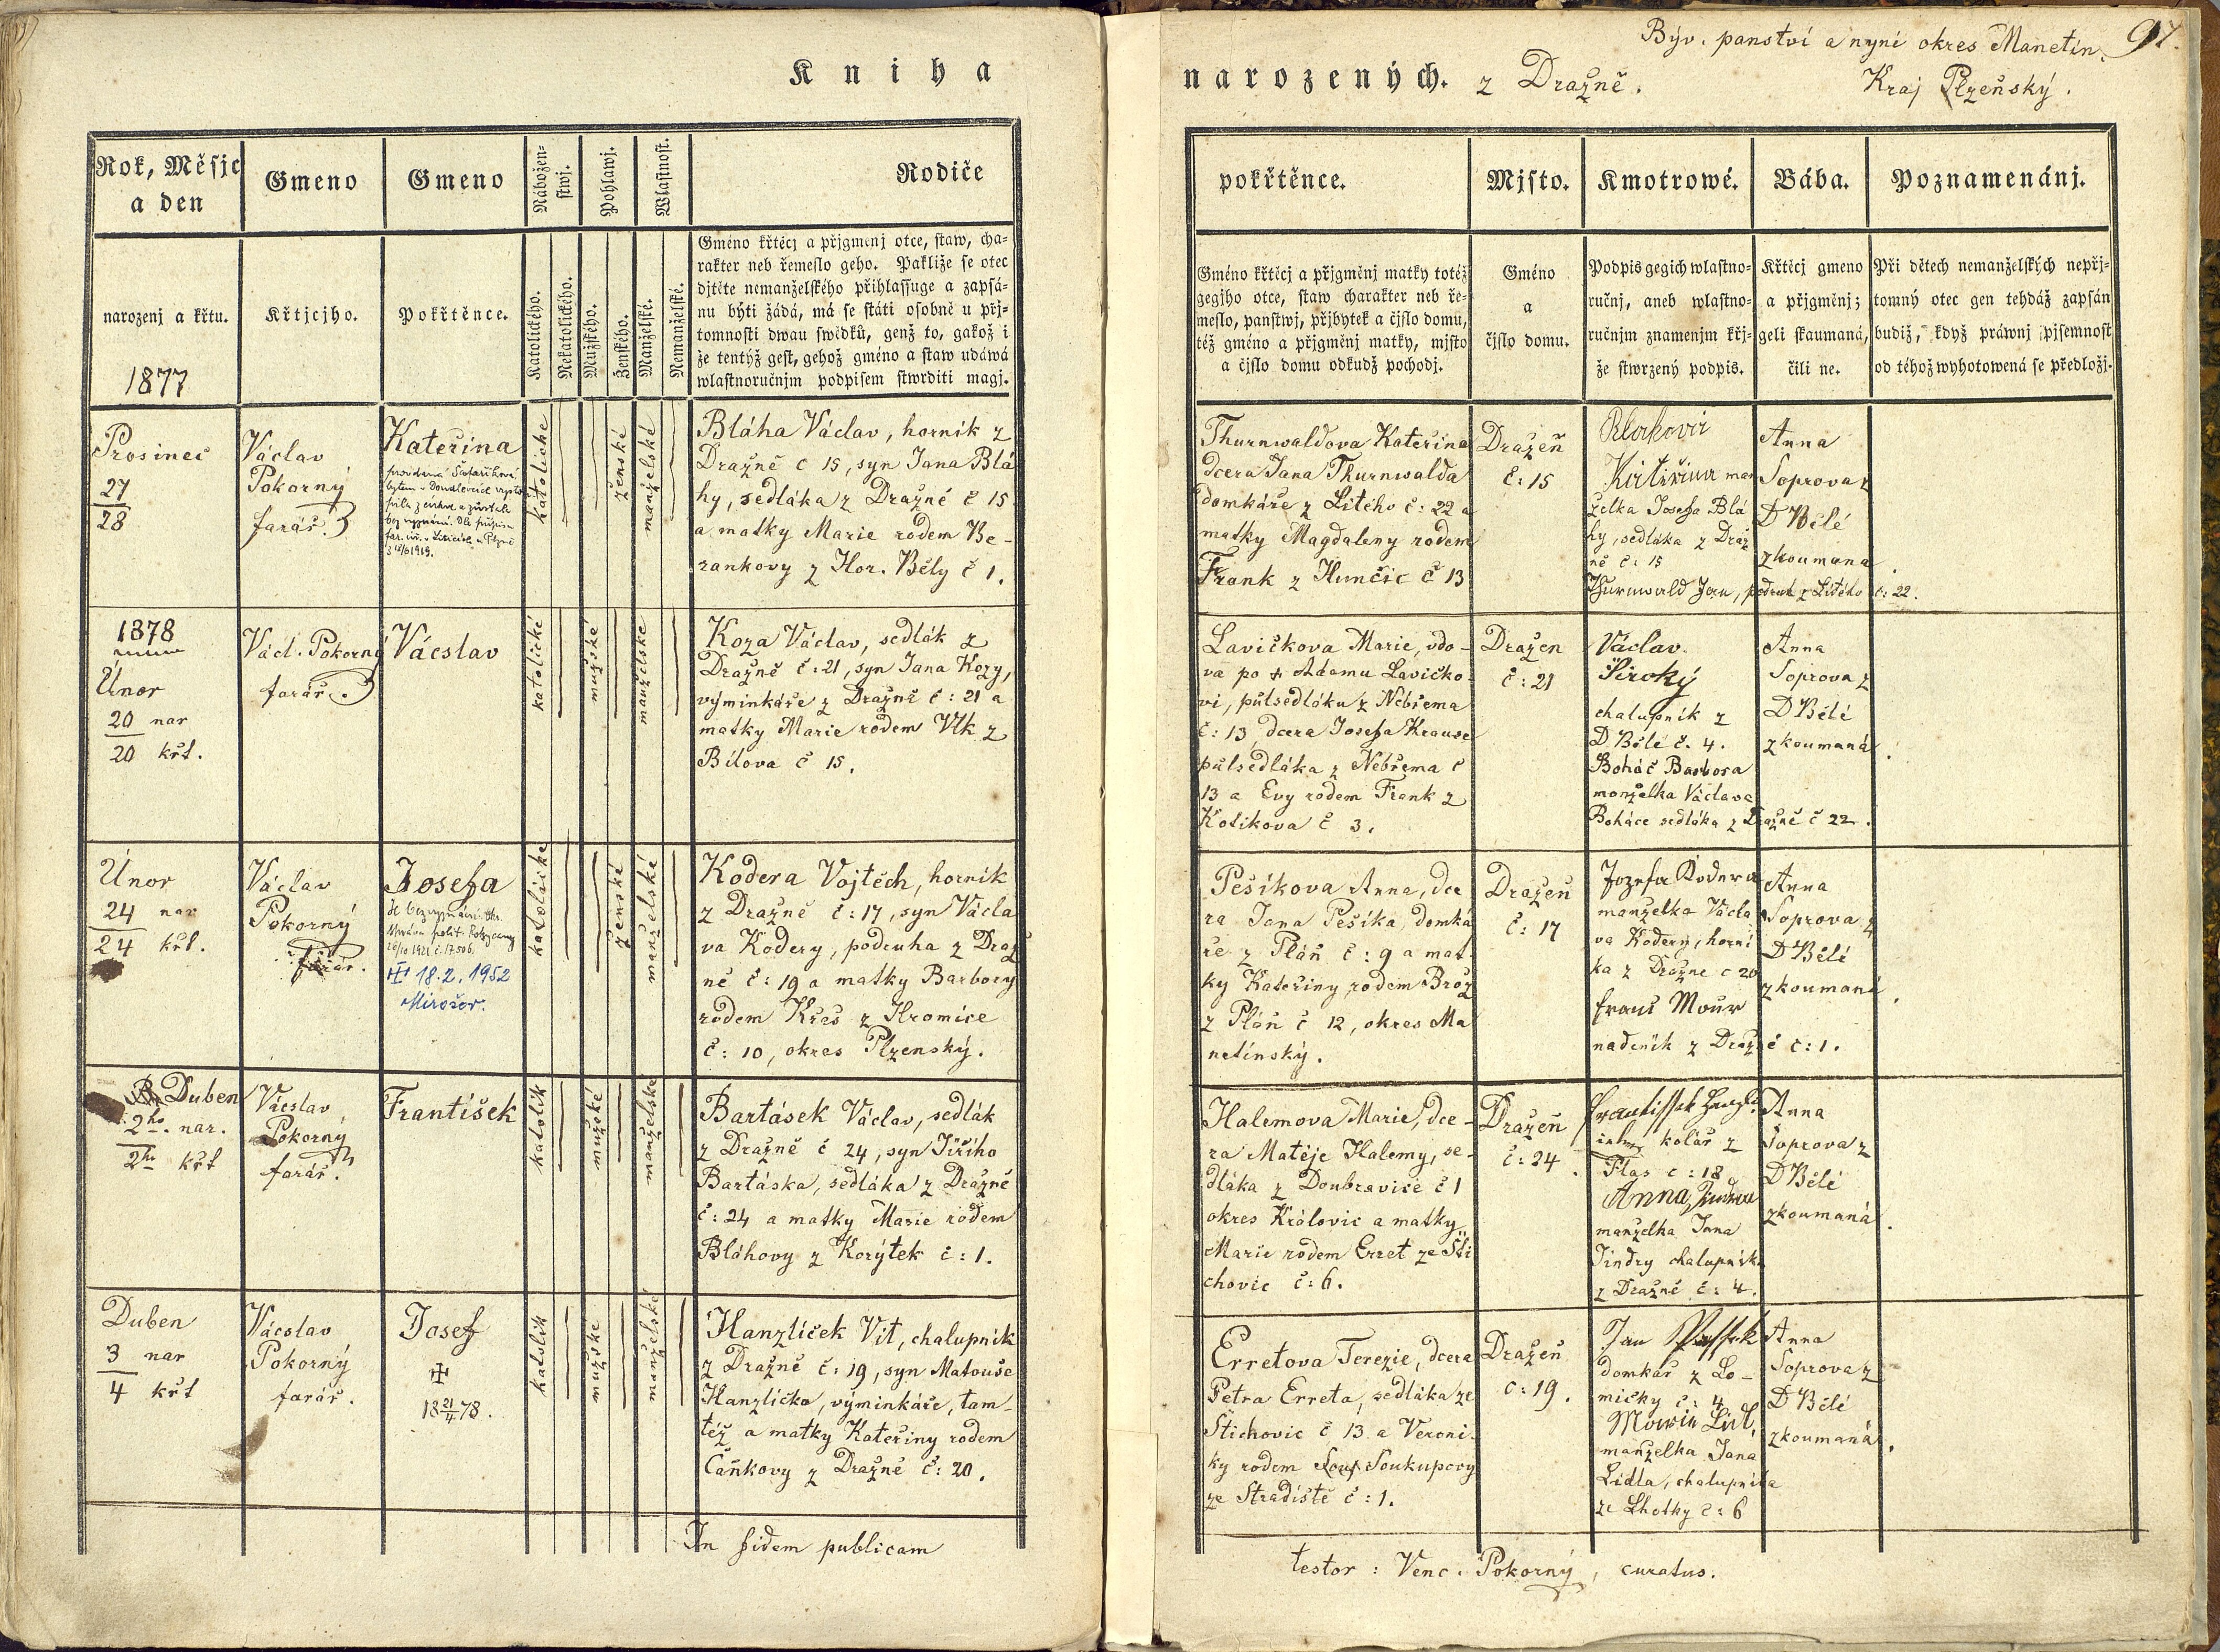 Kniha
Rok, Měsjc
a den
narozenj a křtu.
1877
Gmeno
Křtjcjho.
Gmeno
Pokřtěnce.
Nábožen=
stwj.
Katolického.
Nekatolického.
Pohlawj.
Mužského.
Ženského.
Wlastnost.
Manželské.
Nemanželské.
Rodiče
Gméno křtěcj a přjgmenj otce, staw, cha=
rakter neb řemeslo geho. Pakliže se otec
djtěte nemanželského přihlassuge a zapsá=
nu býti žádá, má se státi osobně u přj=
tomnosti dwau swědků, genž to, gakož i
že tentýž gest, gehož gméno a staw udáwá
wlastnoručnjm podpisem stwrditi magj.
Prosinec
27
28
Václav
Pokorný
farář.
Kateřina
bez vyznání.
1919.
katoliche
ženské
manželské
Bláha Václav, horník z
Dražně č 15, syn Jana Blá
hy, sedláka z Dražně č 15
a matky Marie rodem Be-
rankovy z Hor. Běly č 1.
1878
Únor
20 nar
20 křt.
Václ. Pokorný
farář.
Vácslav
katolické
mužské
manželské
Koza Václav, sedlák z
Dražně č:21, syn Jana Kozy,
výminkáře z Dražně č: 21 a
matky Marie rodem Vlk z
Bílova č 15.
Únor
24 nar
24 křt.
Václav
Pokorný
farář.
Josefa
18.2.1952
Mirošov.
katolické
ženské
manželské
Kodera Vojtěch, horník
z Dražně č:17, syn Václa
va Kodery, podruha z Draž
ně č:19 a matky Barbory
rodem Křeš z Hromice
č: 10, okres Plzenský.
Duben
2ho. nar.
2ho křt
Vácslav
Pokorný
farář.
František
katolík
mužské
manželské
Bartásek Václav, sedlák
z Dražně č 24, syn Jiřího
Bartáska, sedláka z Dražně
č:24 a matky Marie rodem
Bláhovy z Korýtek č:1.
Duben
3 nar
4 křt
Vácslav
Pokorný
farář.
Josef
18 21/4 78.
katolík
mužské
manželské
Hanzlíček Vít, chalupník
z Dražně č:19, syn Matouše
Hanzlíčka, výminkáře, tam-
též a matky Kateřiny rodem
Čaňkovy z Dražně č: 20.
In fidem publicam
Býv. panství a nyní okres Manetín.
97.
narozených. z Dražně.
Kraj Plzeňský.
pokřtěnce.
Gméno křtěcj a přjgměnj matky totéž
gegjho otce, staw charakter neb ře=
meslo, panstwj, přjbytek a čjslo domu,
též gméno a přjgměnj matky, mjsto
a čjslo domu odkudž pochodj.
Mjsto.
Gméno
a
čjslo domu.
Kmotrowé.
Podpis gegich wlastno=
ručnj, aneb wlastno=
ručnjm znamenjm křj=
že stwrzený podpis.
Bába.
Křtěcj gmeno
a přjgměnj;
geli skaumaná,
čili ne.
Poznamenánj.
Při dětech nemanželských nepřj=
tomný otec gen tehdáž zapsán
budiž, když práwnj pjsemnost
od téhož wyhotowená se předložj.
Thurnwaldova Kateřina
dcera Jana Thurnwalda
domkáře z Litého č: 22 a
matky Magdaleny rodem
Frank z Hunčic č 13
Dražeň
č: 15
man
želka Josefa Blá
hy, sedláka z Draž
ně č: 15
Thurnwald Jan, podruh z Litého č: 22.
Anna
Soprova z
D Bělé
zkoumana.
Lavičkova Marie, vdo-
va po + Adamu Lavičko-
vi, půlsedláku z Nebřema
č: 13, dcera Josefa Krause
půlsedláka z Nebřema č
13 a Evy rodem Frank z
Kotikova č 3.
Dražen
č: 21
Václav
Široký
chalupník z
D. Bělé č. 4.
Boháč Barbora
manželka Václava
Boháce sedláka z Dražně č 22.
Anna
Soprova z
D Bělé
zkoumaná.
Pešíkova Anna, dce
ra Jana Pešíka, domká
ře z Pláň č: 9 a mat-
ky Kateřiny rodem Brož
z Pláň č 12, okres Ma
netínský.
Dražeň
č: 17
Jozefa Kodera
manželka Václa
va Kodery, horní
ka z Dražne č 20
Franc Mour
nadeník z Dražně č: 1.
Anna
Soprova z
D Bělé
zkoumaná.
Halemova Marie, dce-
ra Matěje Halemy, se-
dláka z Doubravice č 1
okres Královic a matky
Marie rodem Erret ze Šti
chovic č: 6.
Dražeň
č: 24.
kolář z
Plas č: 18
Anna Jindra
manželka Jana
Jindry chalupníka
z Dražně č: 4.
Anna
Soprova z
D Bělé
zkoumaná.
Erretova Terezie, dcera
Petra Erreta, sedláka ze
Štichovic č 13 a Veroni-
ky rodem Soukupovy
ze Stradiště č: 1.
Dražeň
č: 19.
Jan
domkář z Lo-
mičky č: 4
Marie Lidl,
manželka Jana
Lidla, chalupníka
ze Lhotky č: 6
Anna
Soprova z
D Bělé
zkoumaná.
testor: Venc. Pokorný, curatus.